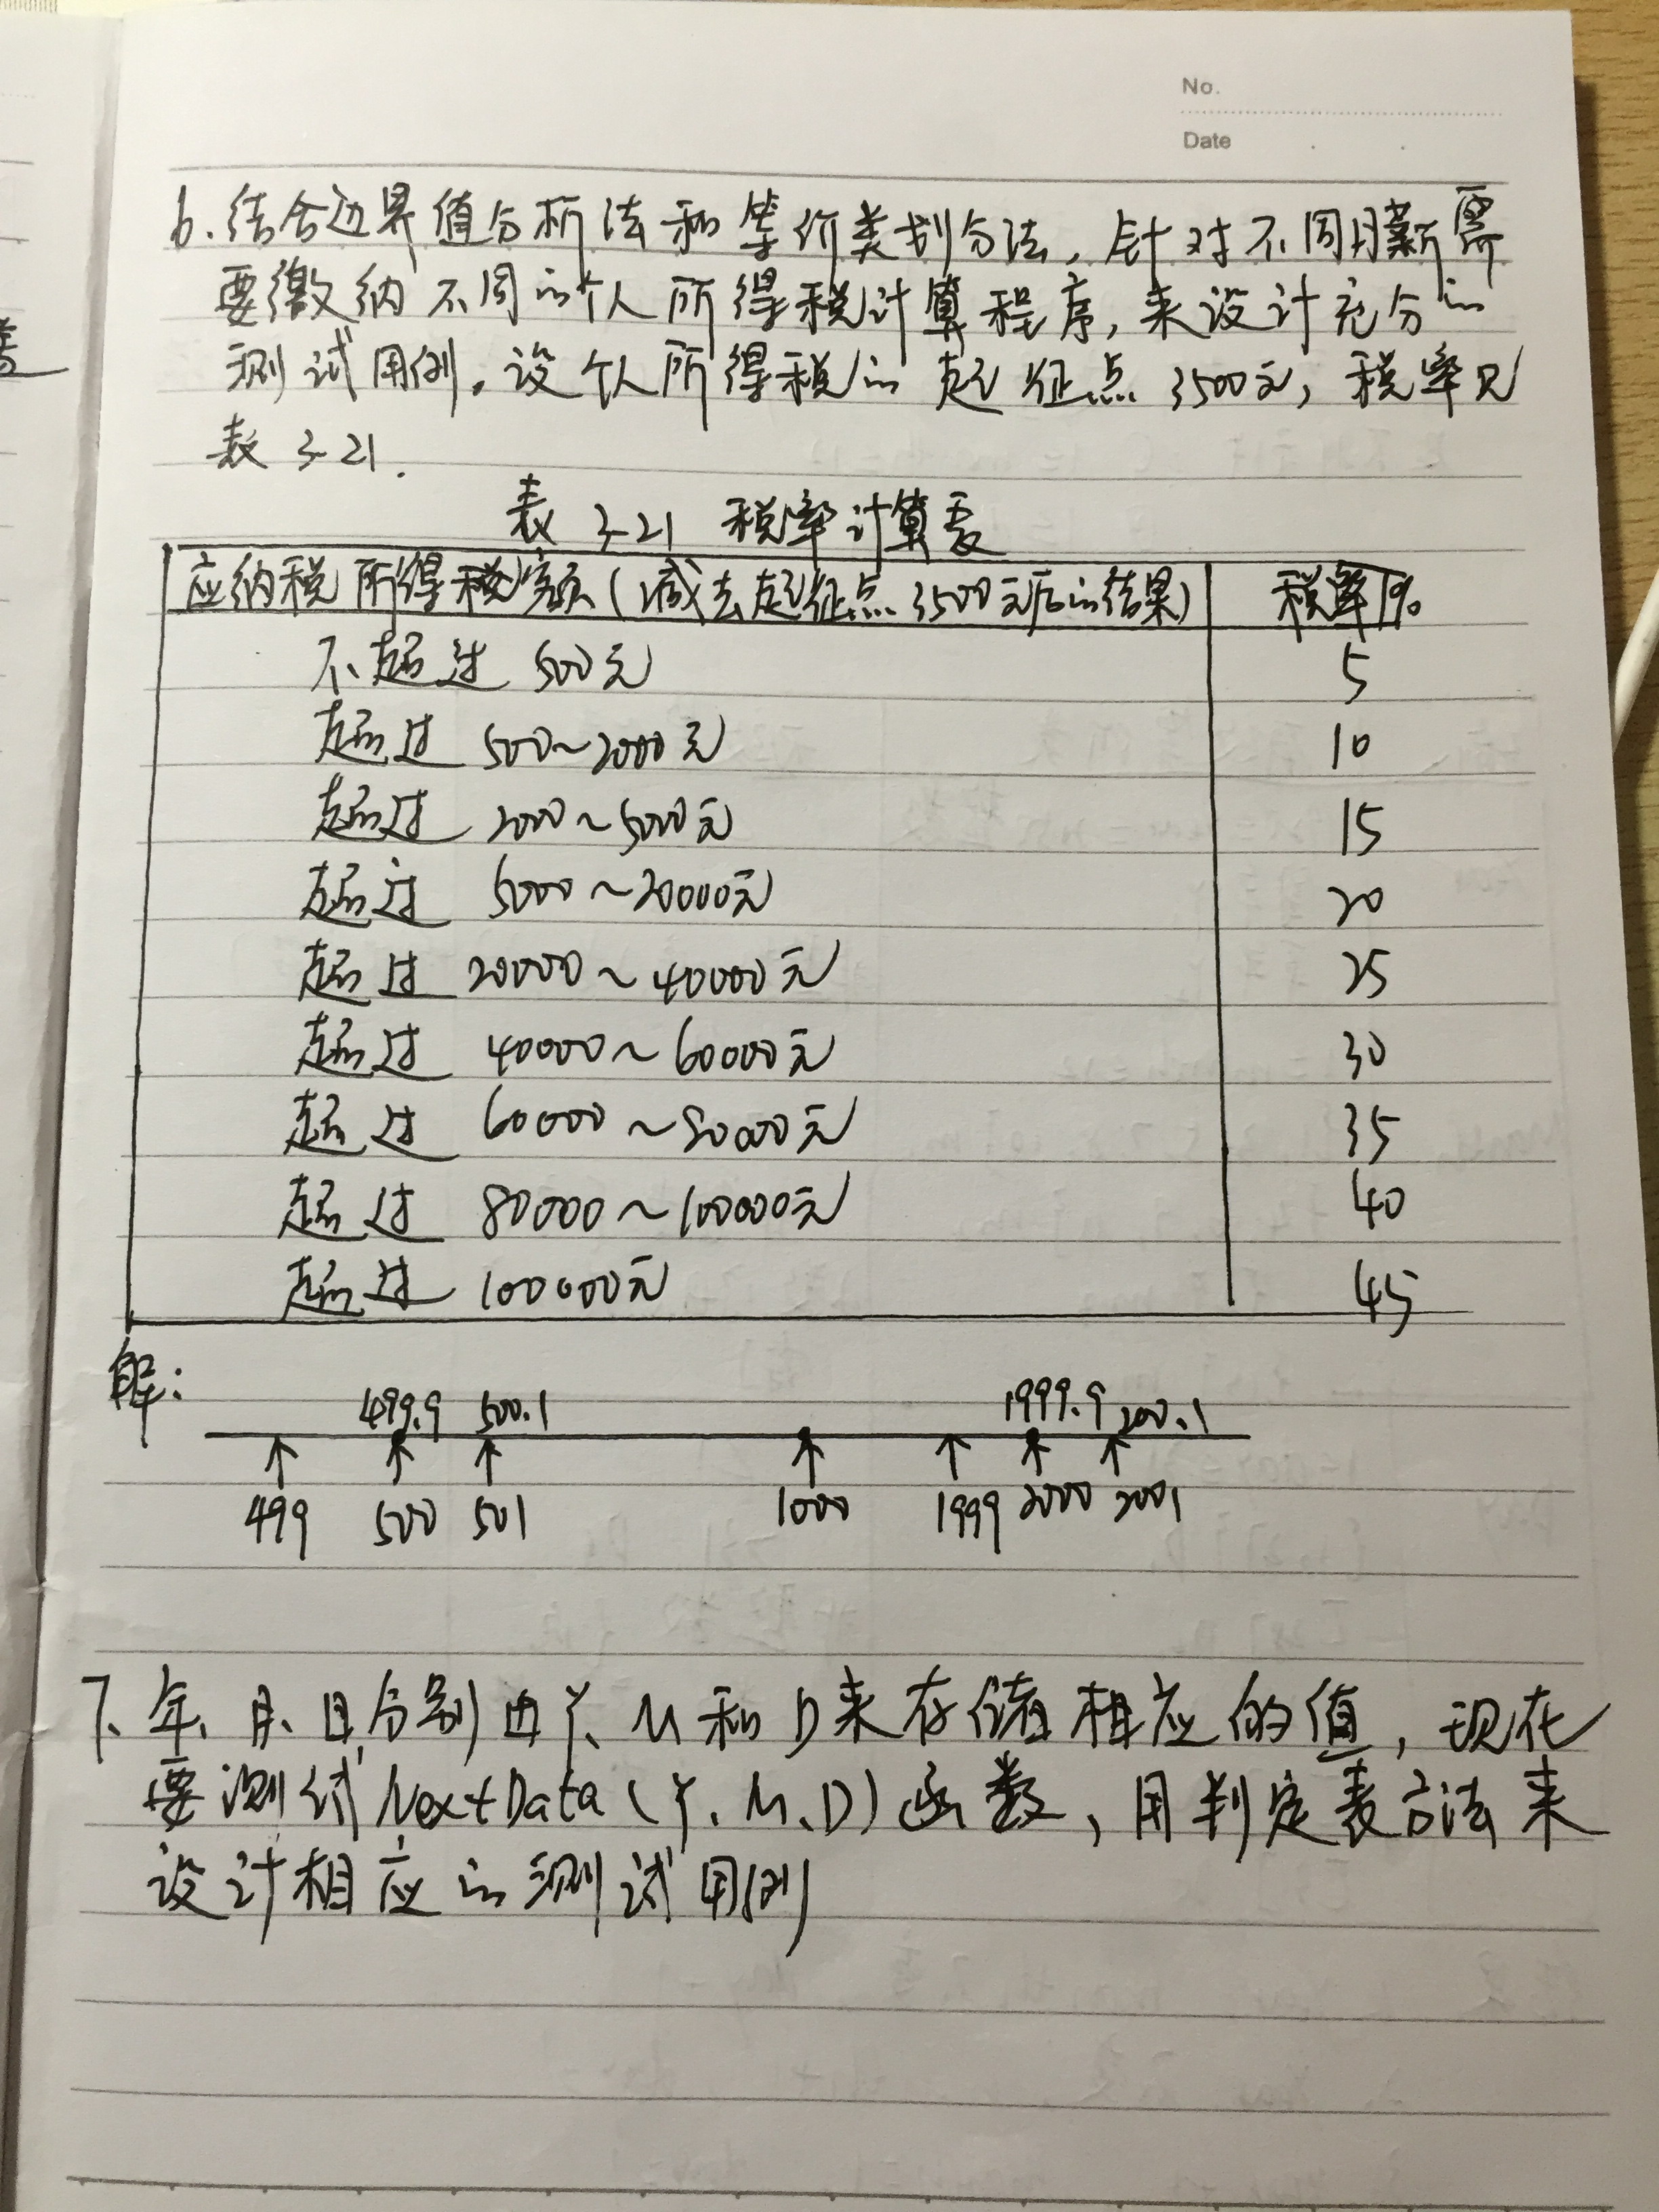 No.
Date
6.结合边界值分析法和等价类划分法,针对不同月薪需
要缴纳不同的个人所得税计算程序,来设计充分的
测试用例。设个人所得税的起征点3500元,税率见
表3-21.
表3-21 税率计算表
应纳税所得税额(减去起征点3500元后的结果) 税率/%
不超过 500元 5
超过 500~2000元 10
超过 2000~5000元 15
超过 5000~20000元 20
超过 20000~40000元 25
超过 40000~60000元 30
超过 60000~80000元 35
超过 80000~100000元 40
超过 100000元 45
解:
499.9 500.1 1999.9 200.1
499 500 501 1000 1999 2000 2001
7、年、月、日分别由Y、M和D来存储相应的值,现在
要测试NextData(Y、M、D)函数,用判定表方法来
设计相应的测试用例